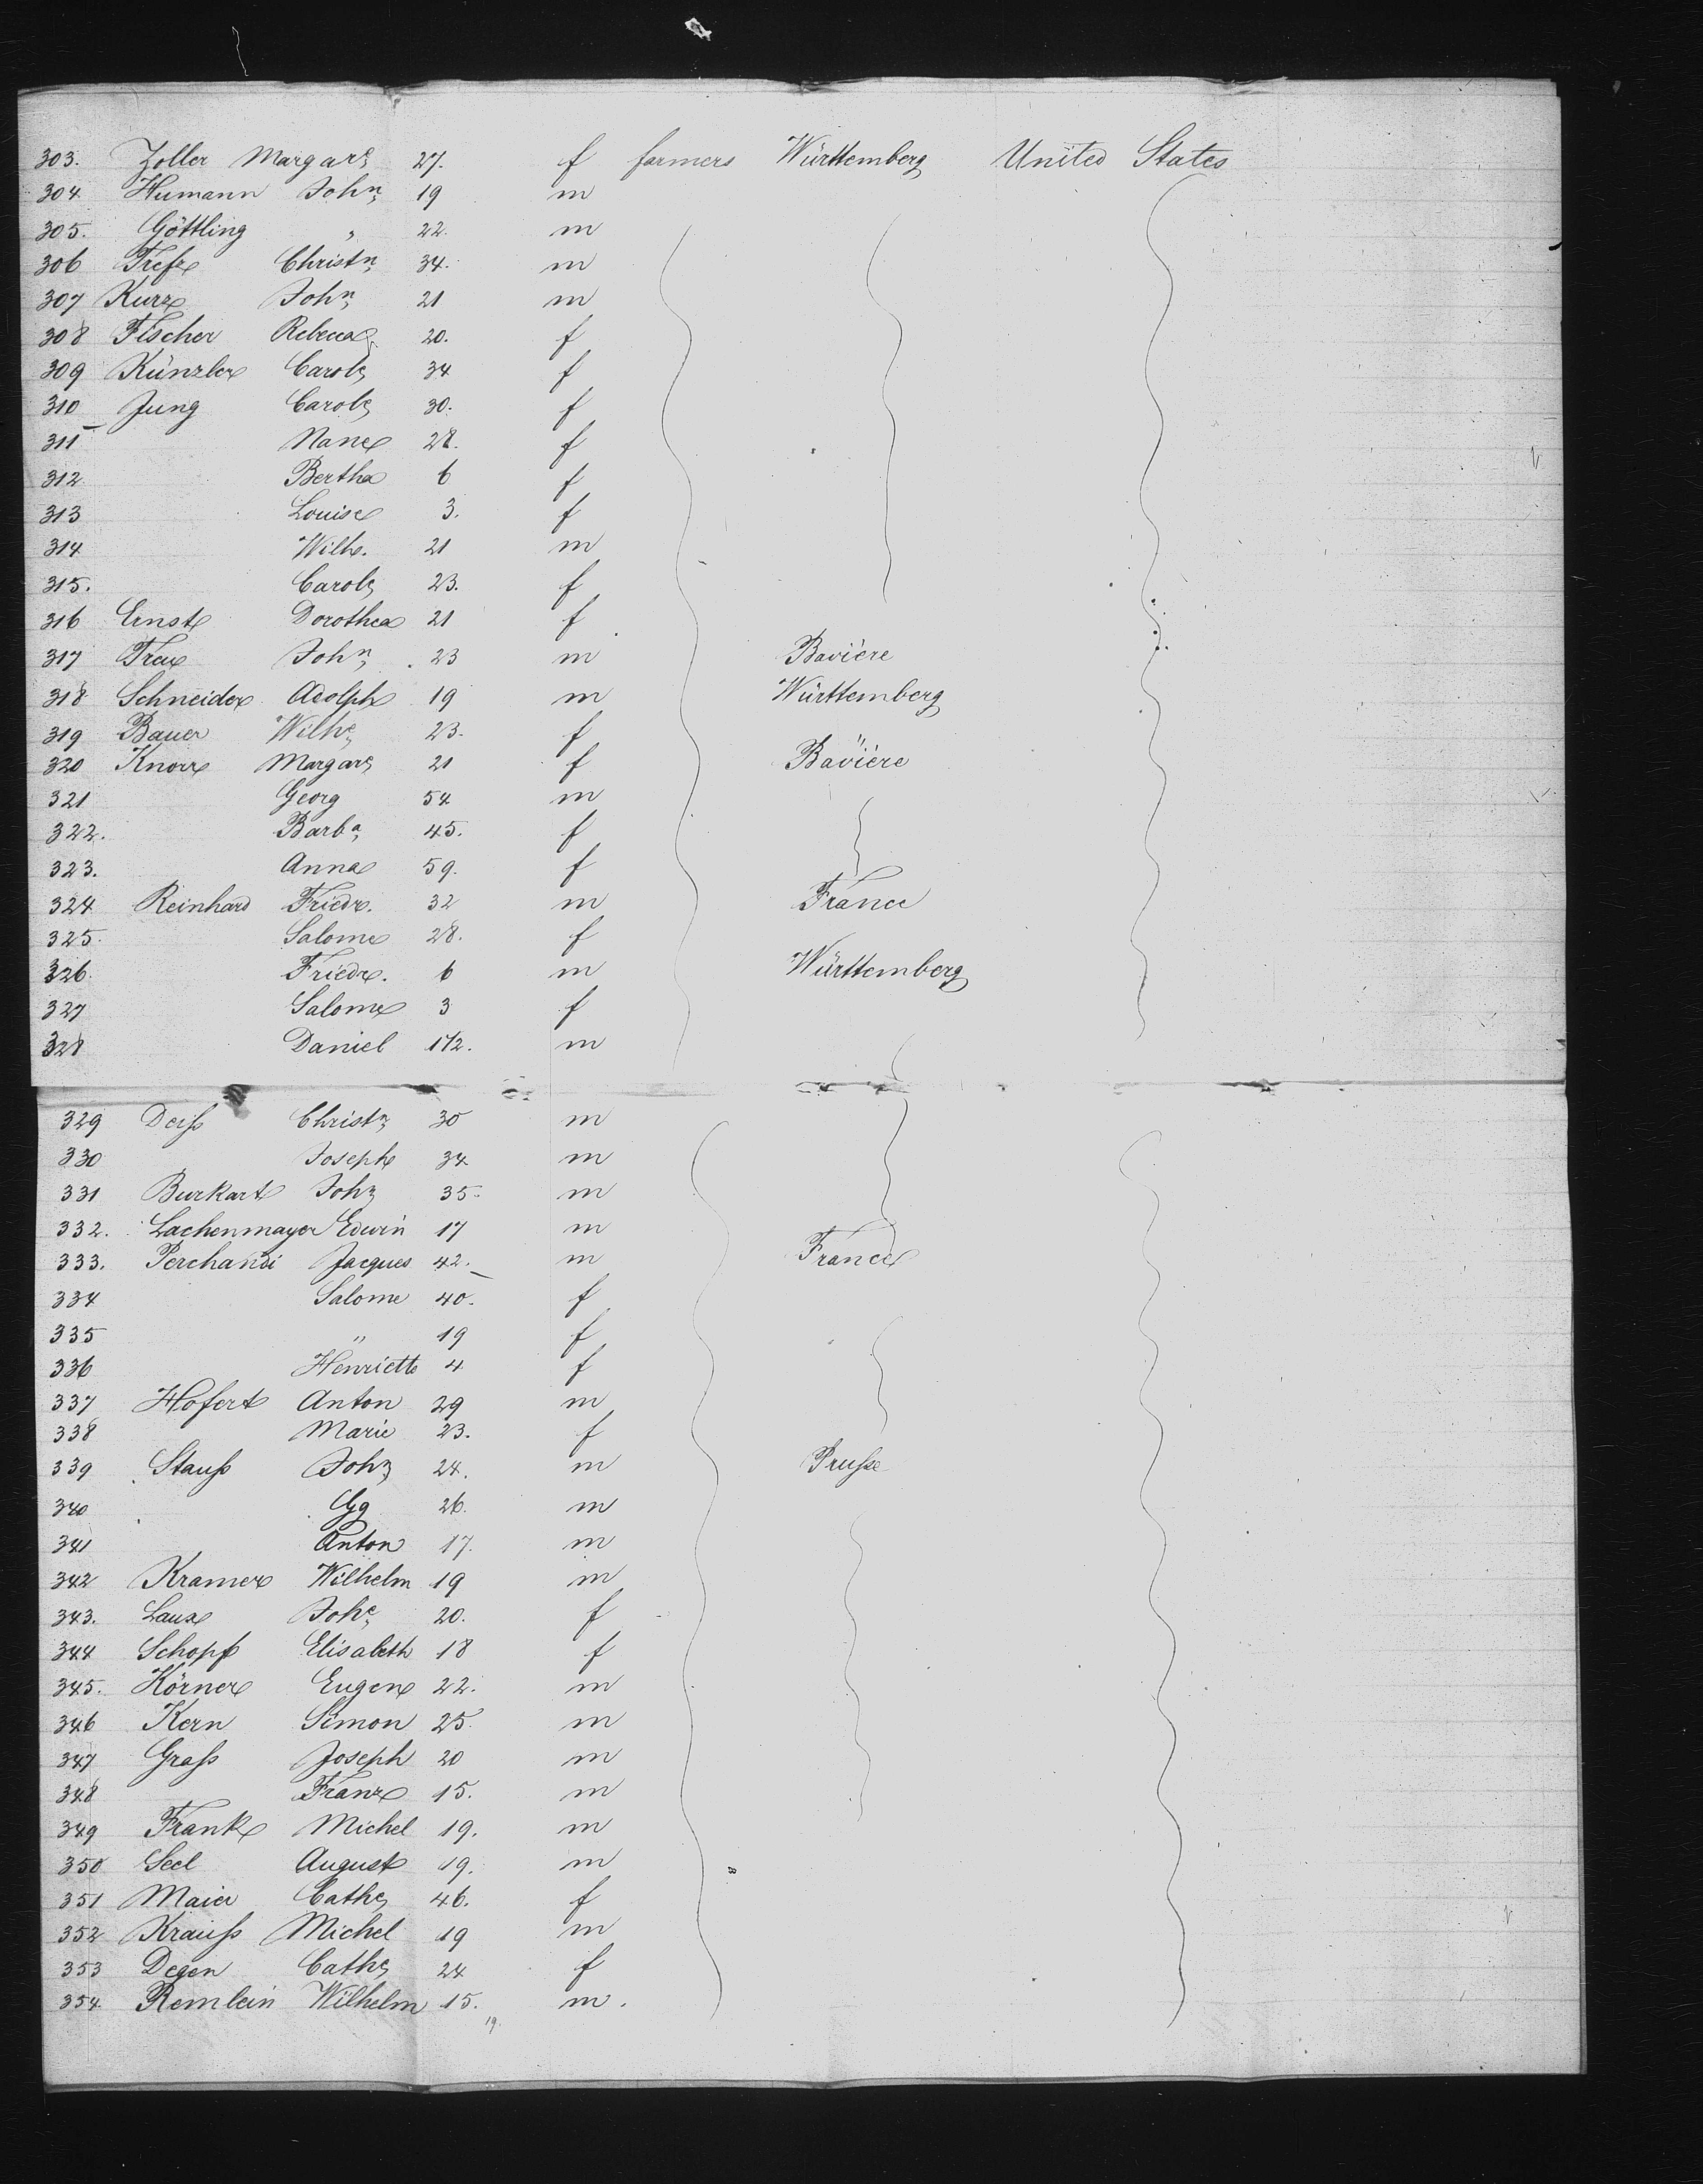 303. Zoller Margare 27. f farmers Württemberg United States
304 Humann John 19 m
305. Göttling " 22. m
306 Trefz Christn 34. m
307 Kurz John 21 m
308 Fischer Rebecca 20. f
309 Künzler Carole 34 f
310 Jung Carole 30. f
311 Nane 28. f
312 Bertha 6 f
313 Louise 3. f
314 Wilh. 21 m
315. Carole 23. f
316 Ernst Dorothea 21 f
317 John 23 m Bavière
318 Schneider Adolph 19 m Württemberg
319 Bauer Wilhe 23. f
320 Knorr Margare 21 f Bavière
321 Georg 54 m
322. Barba 45. f
323. Anna 59. f
324 Reinhard Friedr. 32 m France
325. Salome 28. f
326. Friedr. 6 m Württemberg
327 Salome 3 f
328 Daniel 1 1/2. m
329 Deiß Christn 30 m
330 Joseph 34 m
331 Burkart Joh 35. m
332. Lachenmayer Edwin 17 m
333. Perchandi Jacques 42. m France
334 Salome 40. f
335 " 19 f
336 Henriette 4 f
337 Hofert Anton 29 m
338 Marie 23. f
339 Stauß Joh 24. m Prusse
340 Gg 26. m
341 Anton 17. m
342 Kramer Wilhelm 19 m
343. Laux Johe 20. f
344 Schopf Elisabeth 18 f
345. Körner Eugen 22. m
346 Kern Simon 25. m
347 Graß Joseph 20 m
348 Franz 15. m
349 Frank Michel 19. m
350 Seel August 19. m
351 Maier Cathe 46. f
352 Krauß Michel 19 m
353 Degen Cathe 24 f
354. Remlein Wilhelm 15. m.
19.